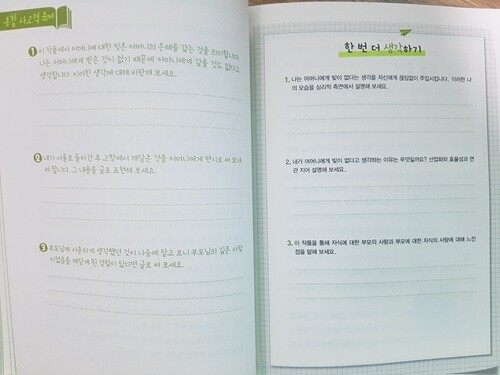 통합 사고력 문제
1 이 작품에서 어머니에 대한 빚은 어머니의 은혜를 갚는 것을 의미합니다.
나는 어머니에게 빚은 것이 없기 때문에 어머니에게 갚을 것도 없다고
생각합니다. 이러한 생각에 대해 비판해 보세요.
2 내가 서울로 돌아간 후 고향에서 깨달은 것을 어머니에게 편지로 써 보내
려 합니다. 그 내용을 글로 표현해 보세요.
3 부모님께 사운하게 생각했던 것이 나중에 알고 보니 부모님의 깊은 사랑
이었음을 깨닫게 된 경험이 있다면 글로 써 보세요.
한 번 더 생각하기
1. 나는 어머니에게 빚이 없다는 생각을 자신에게 끊임없이 주입시킵니다. 이러한 나
의 모습을 심리적 측면에서 설명해 보세요.
2. 내가 어머니에게 빚이 없다고 생각하는 이유는 무엇일까요? 산업화와 효율성과 연
관 지어 설명해 보세요.
3. 이 작품을 통해 자식에 대한 부모의 사랑과 부모에 대한 자식의 사랑에 대해 느낀
점을 말해 보세요.